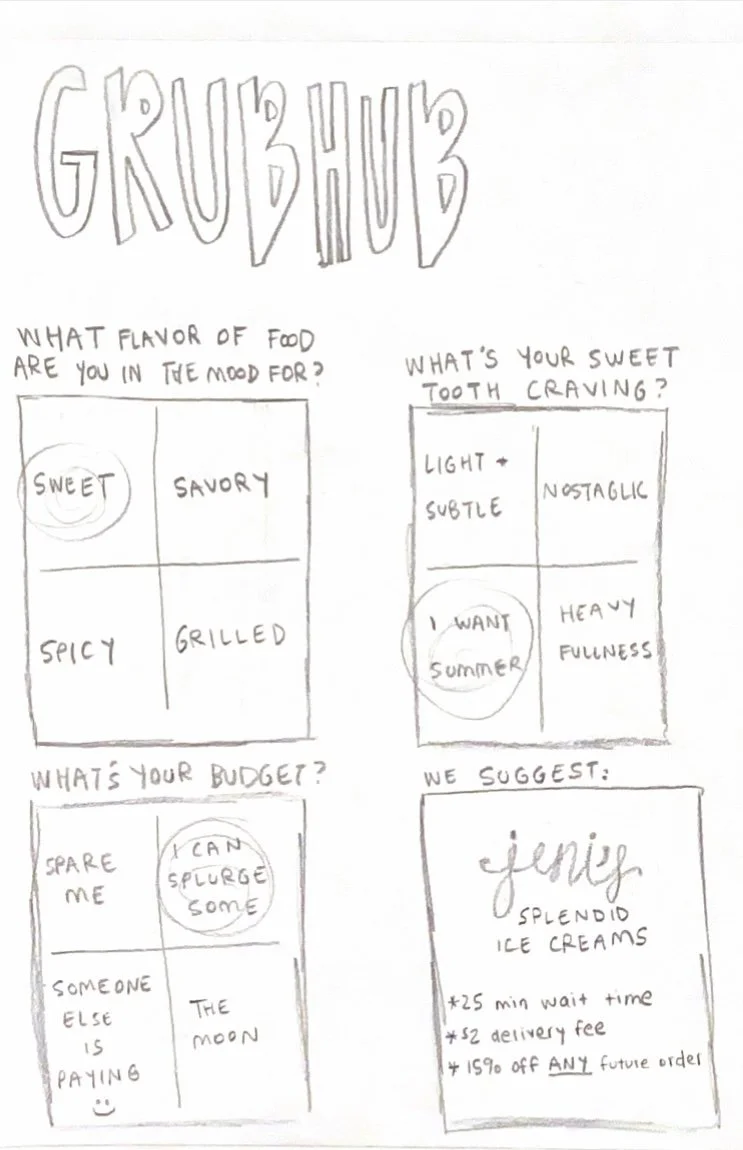 GRUBHUB
WHAT FLAVOR OF FOOD
ARE YOU IN THE MOOD FOR?
SWEET
SAVORY
SPICY
GRILLED
WHAT'S YOUR SWEET
TOOTH CRAVING?
LIGHT +
SUBTLE
NOSTAGLIC
I WANT
SUMMER
HEAVY
FULLNESS
WHAT'S YOUR BUDGET?
SPARE
ME
I CAN
SPLURGE
SOME
SOMEONE
ELSE
IS
PAYING
THE
MOON
WE SUGGEST:
jenis
SPLENDID
ICE CREAMS
*25 min wait time
*$2 delivery fee
*15% off ANY future order